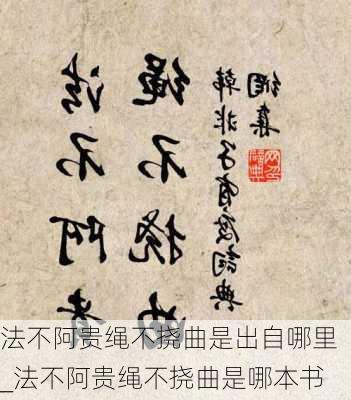 法不阿贵
绳不挠曲
韓非子有度詞典
網集
法不阿贵绳不挠曲是出自哪里
_法不阿贵绳不挠曲是哪本书